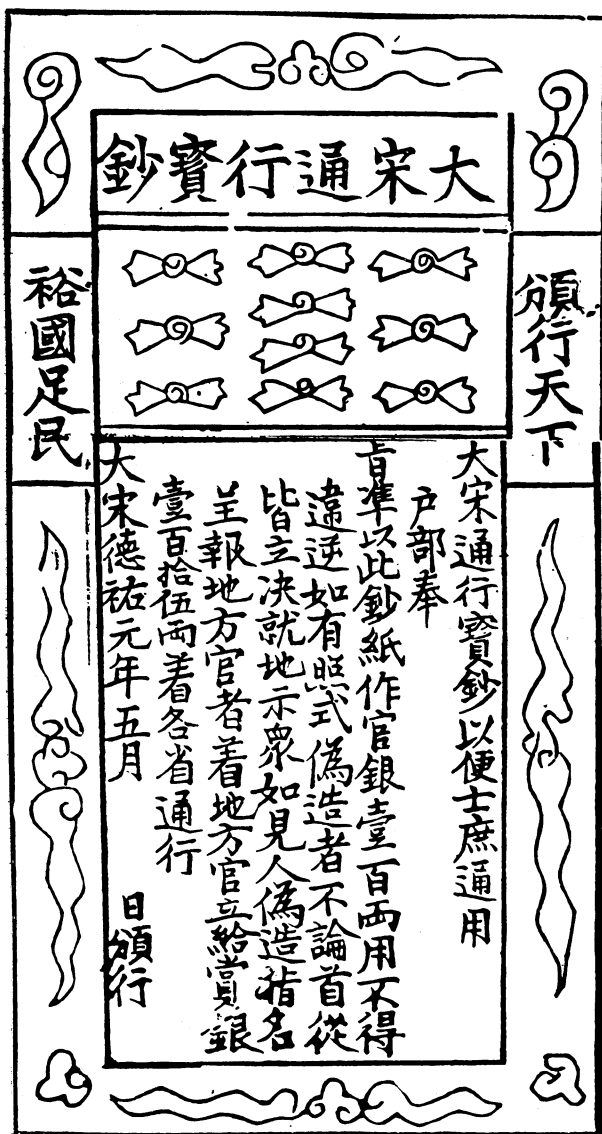 大宋通行寳鈔
頒行天下
裕國足民
大宋通行寳鈔以便士庶通用
户部奉
旨準以此鈔紙作官銀壹百両用不得
違逆如有照式偽造者不論首從
皆立决就地示衆如見人偽造指名
呈報地方官者着地方官立給賞銀
壹百拾伍両着各省通行
大宋德祐元年五月 日頒行